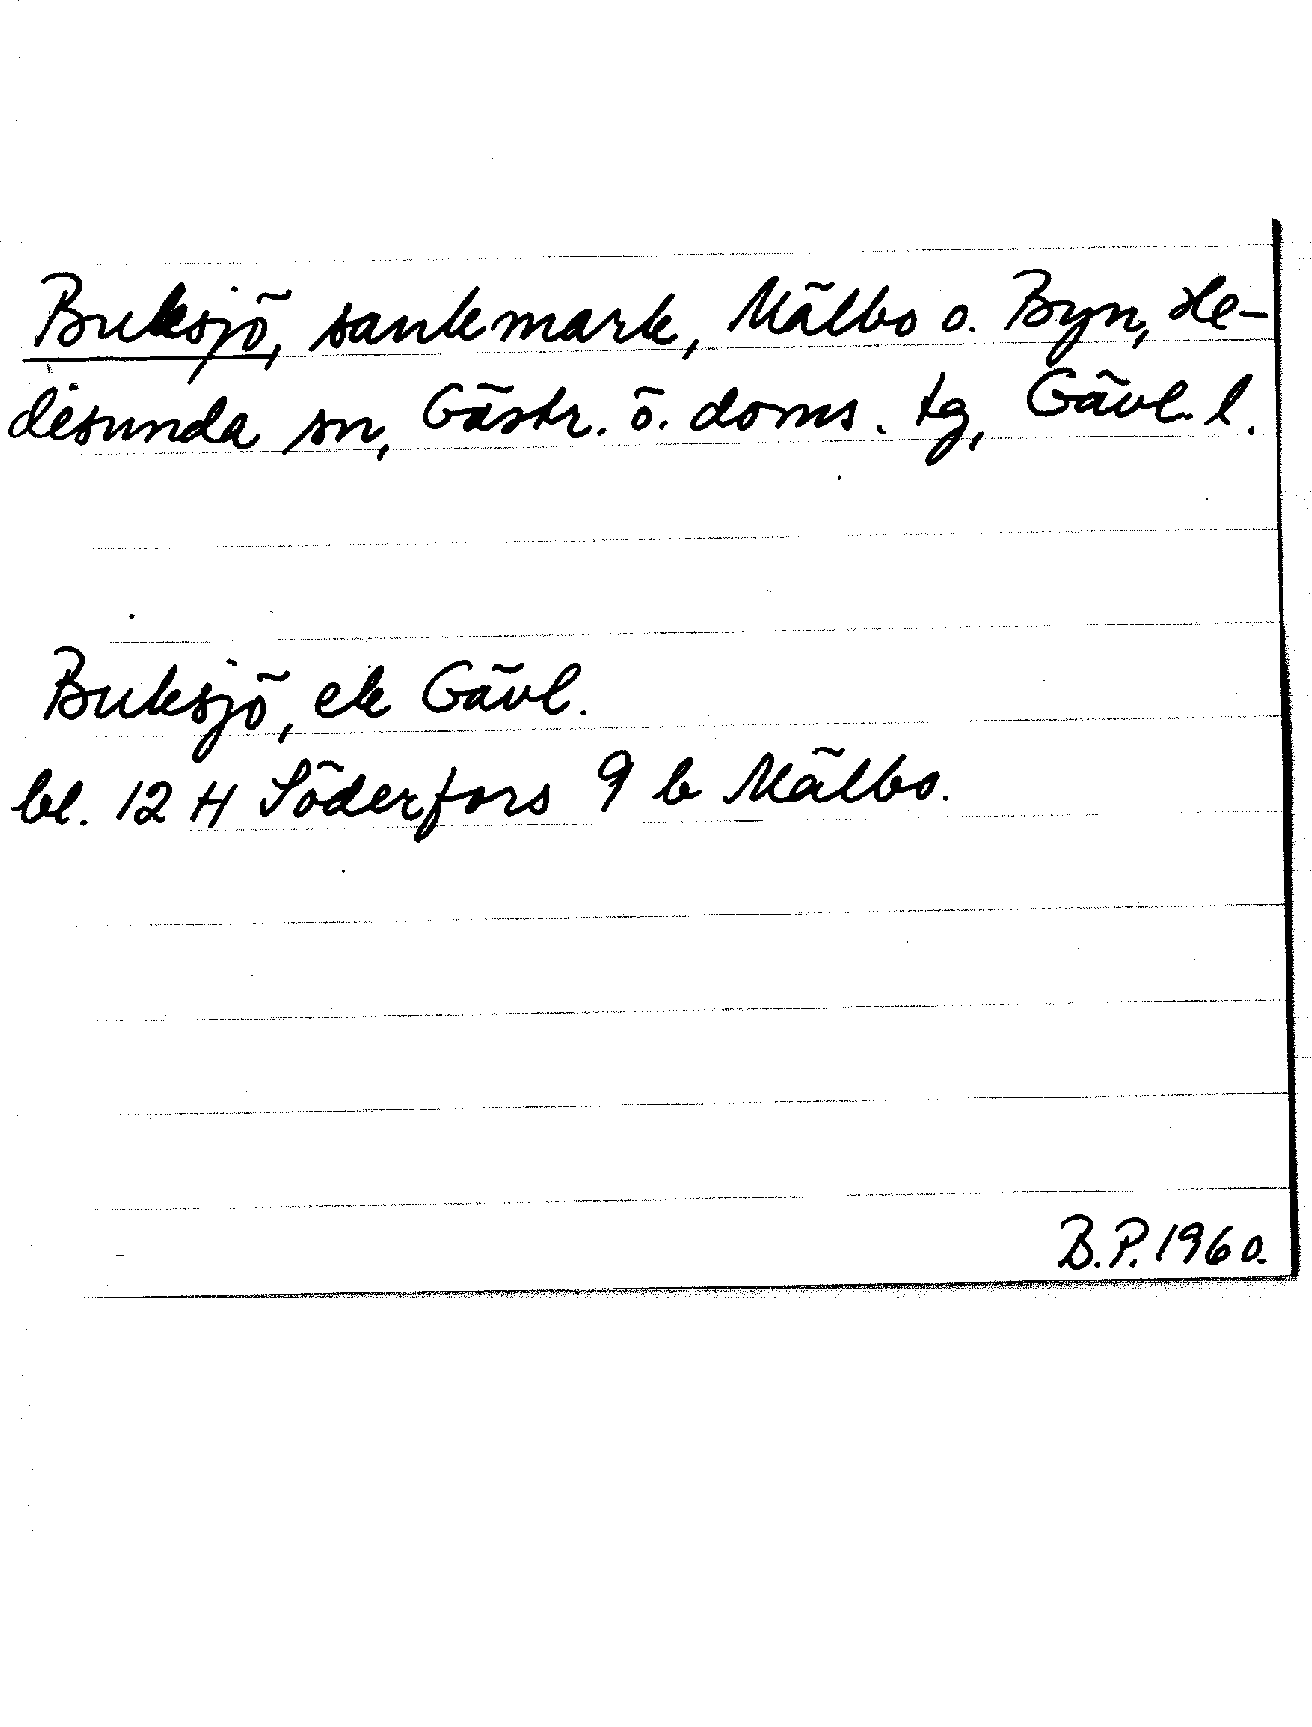 Buksjö, sankmark, Mälbo o. Byn, He-
desunda sn, Gästr. ö. doms. tg, Gävl. l.
Buksjö, ek Gävl.
bl. 12 H Söderfors 9 b Mälbo.
B.P. 1960.